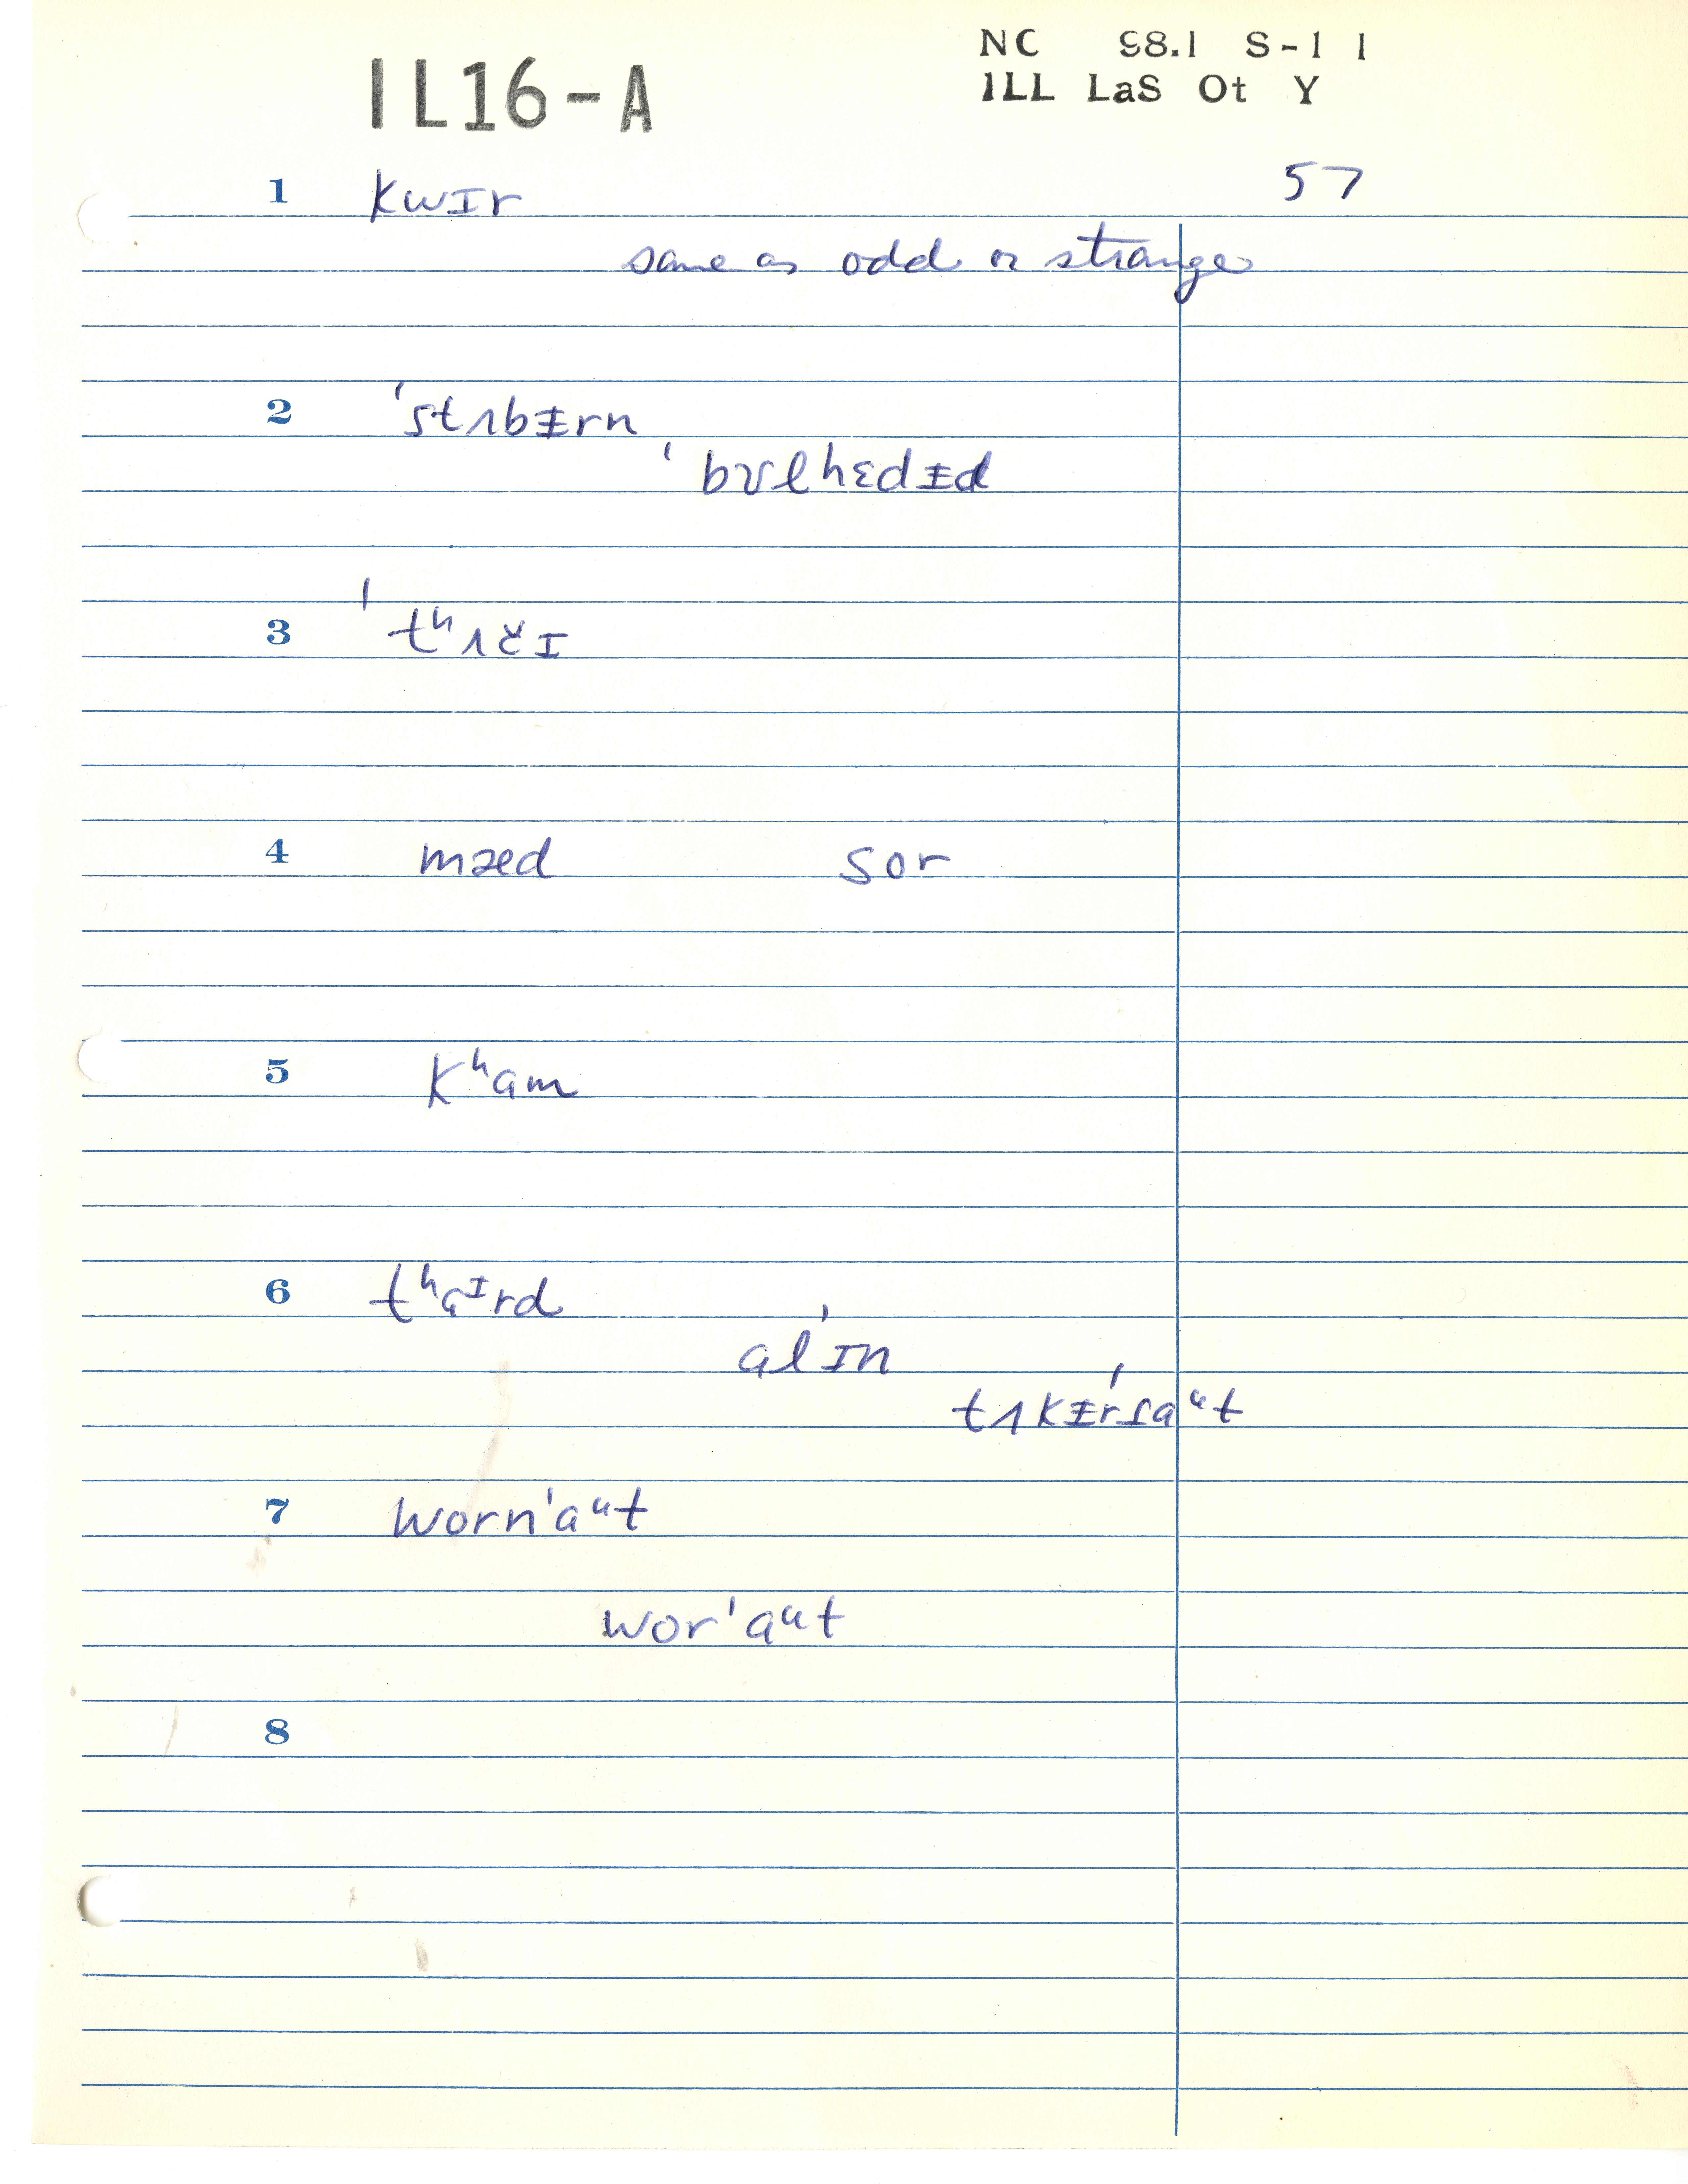 IL16-A
NC 98.1 S-1 1
ILL LaS Ot Y
57
1 kwɪr
same as odd or strange
2 ˈstʌbᵻrn
ˈbʊlhɛdᵻd
3
4 mæd sor
5 kʰɑm
6 tʰɑᶦrd
ɑlˈɪn
tʌkᵻrˈsaᵘt
7 wornˈaᵘt
worˈɑᵘt
8